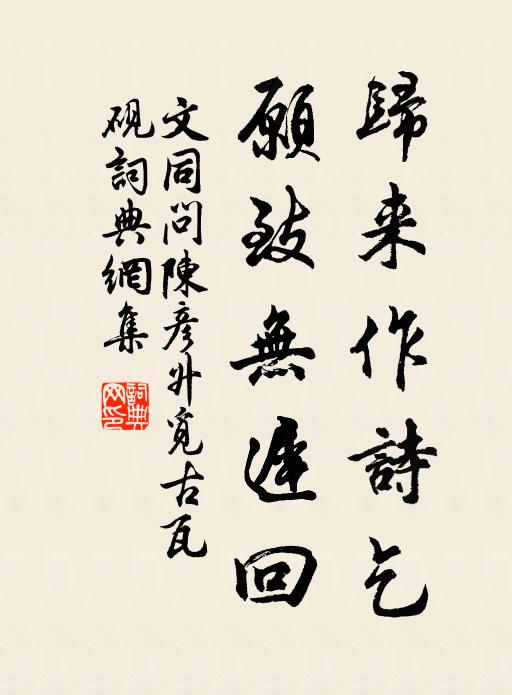 歸来作詩乞
願致無遲回
文同問陳彦升覓古瓦
硯詞典網集
詞典网印